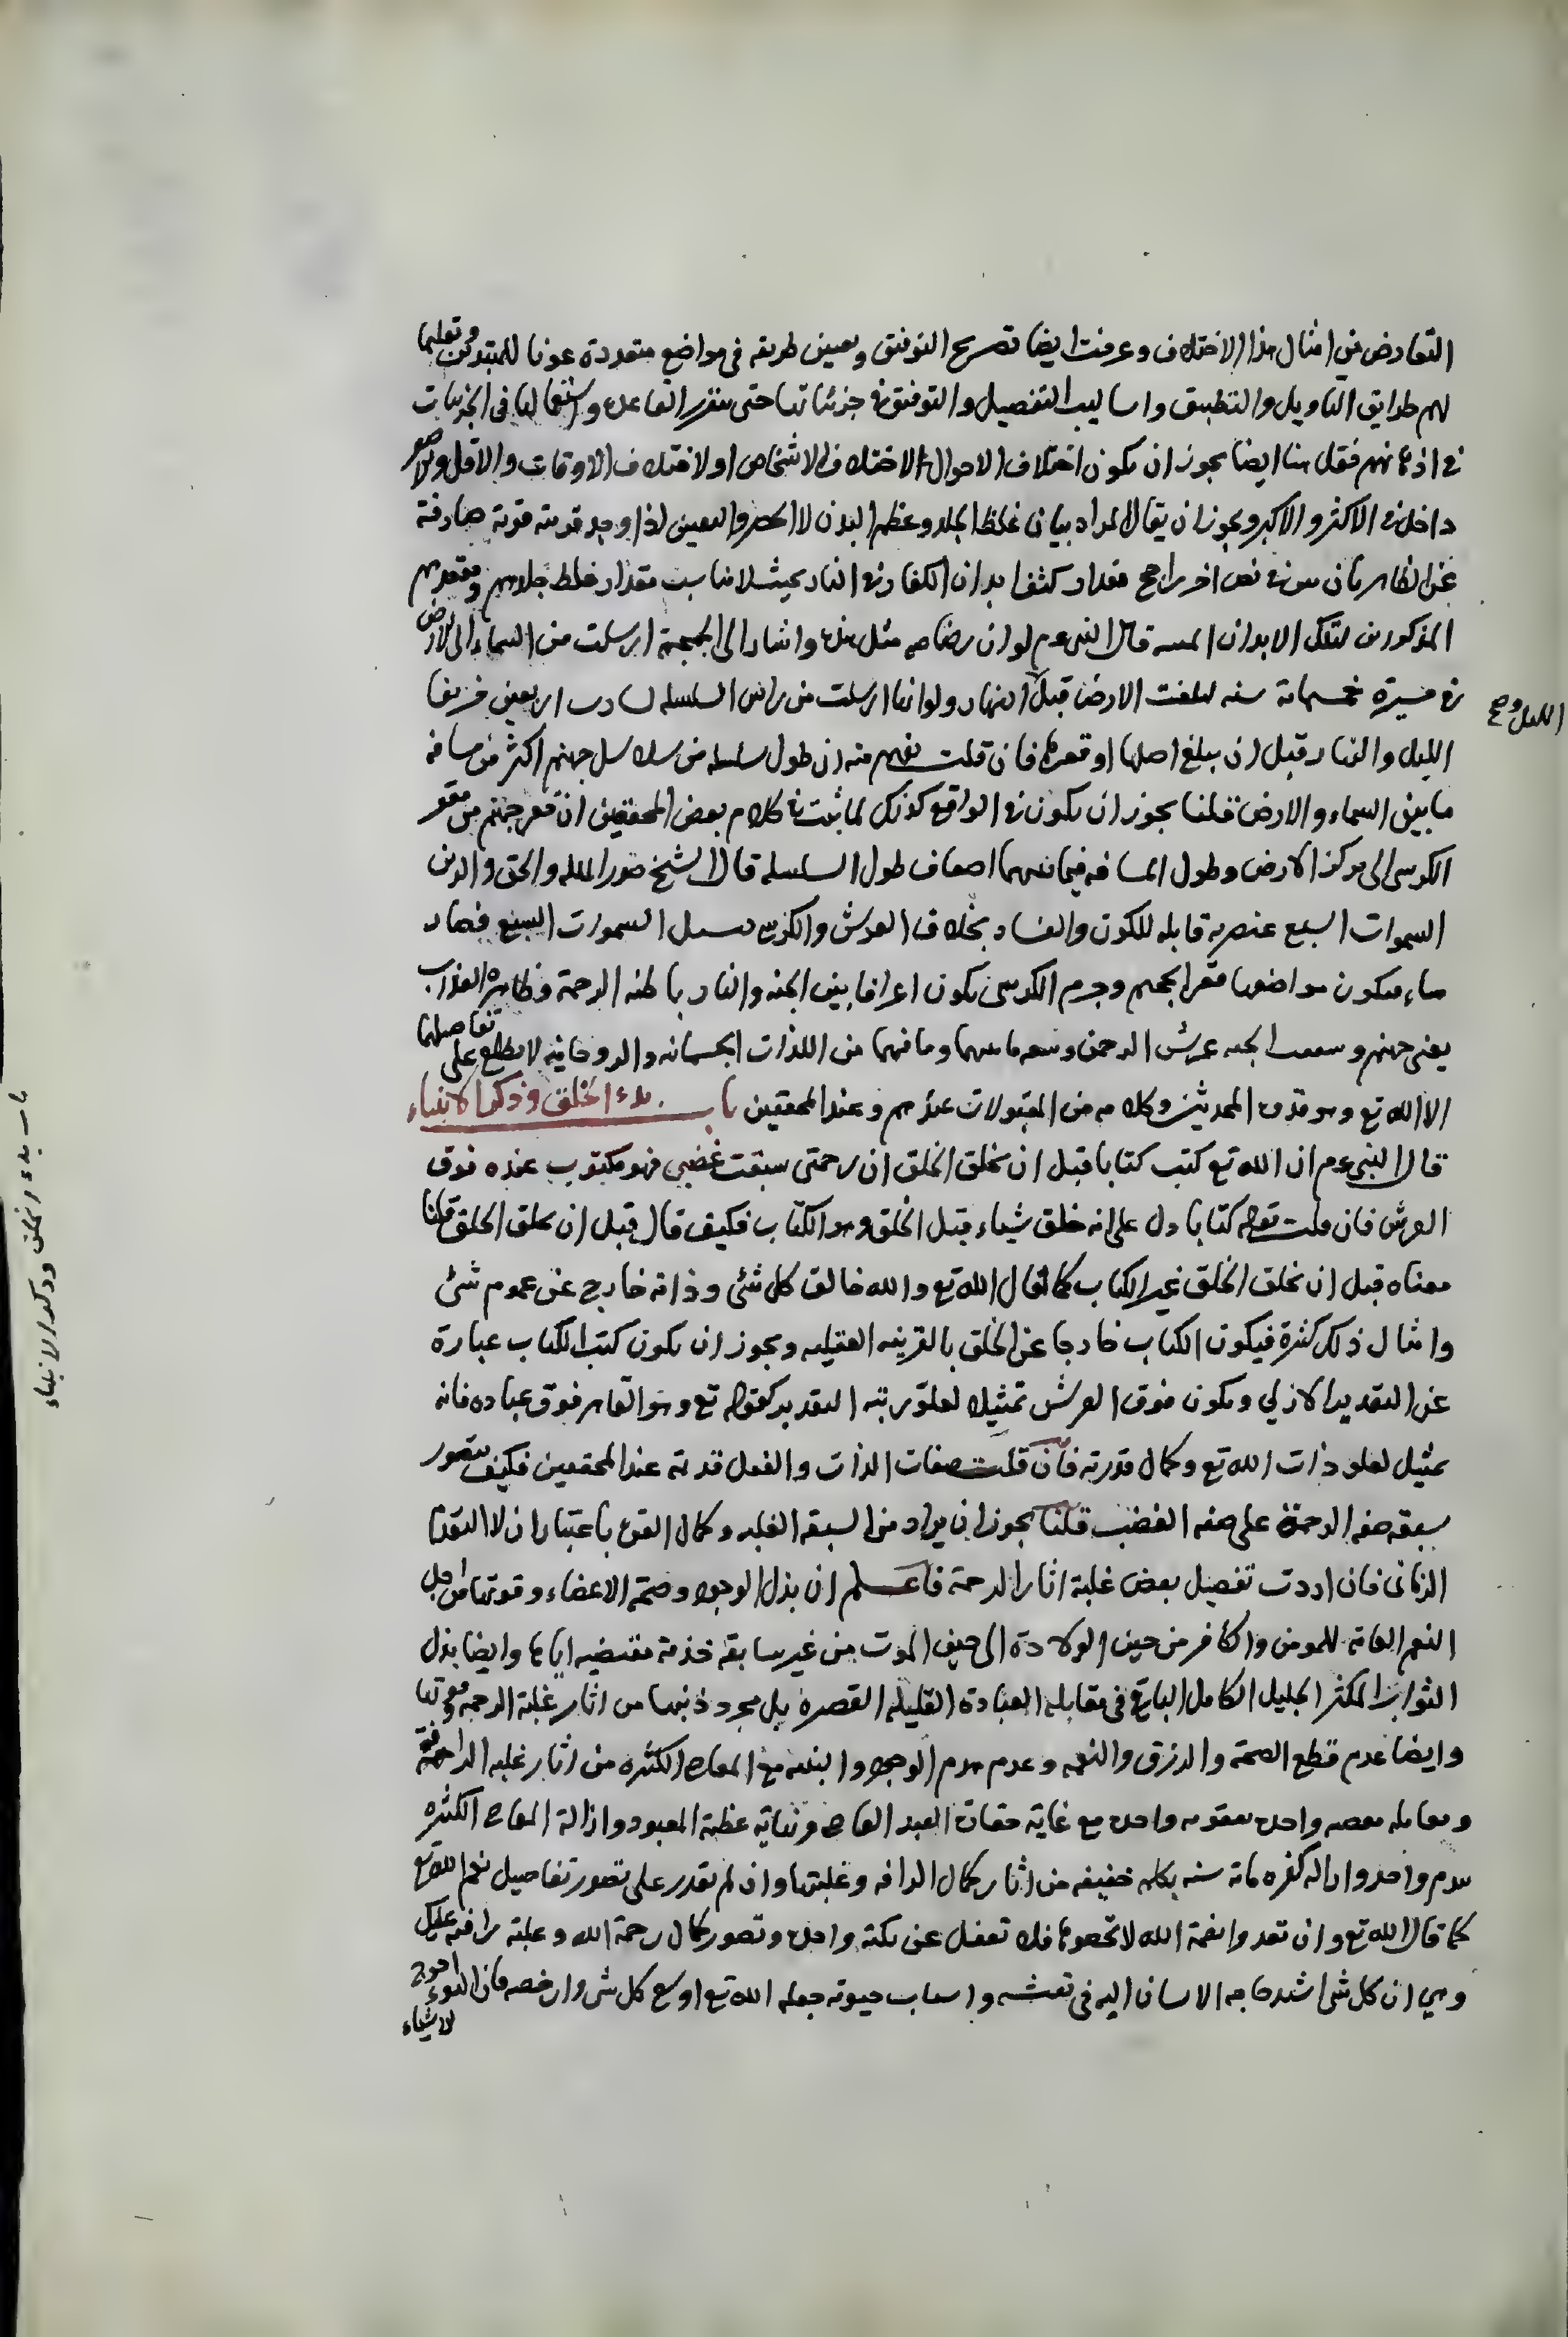 التعارض من امثال هذا الاختلاف وعرفت ايضا تصريح التوفيق وتعيين طريقه في مواضع متعددة عونا للمبتدئين وتعليما
لهم طرايق التاويل والتطبيق واساليب التفصيل والتوفيق في جزئياتها حتى يتقرر القاعدة واستعمالها في الجزئيات
في اذهانهم فقل هنا ايضا يجوز ان يكون اختلاف الاحوال لاختلاف الاشخاص او لاختلاف الاوقات والاقل والاصغر
داخل في الاكثر والاكبر ويجوز ان يقال المراد بيان غلظ الجلد وعظم البدن لا الحصر والتعيين لذا وجد قرينة قوية صارفة
عن الظاهر بان في نص اخر راجح مقدار كثف ابدان الكفار في النار بحيث لا يناسب مقدار غلظ جلدهم ومقعدهم
المذكورين لتلك الابدان قال النبي عم لو ان رضاضه مثل هذه واشار الى الجمجمة ارسلت من السماء الى الارض
في مسيرة خمسمائة سنه لبلغت الارض قبل النهار ولو انها ارسلت من راس السلسله لسارت اربعين خريفا
الليل وصح
الليل والنهار قبل ان يبلغ اصلها او قعرها فان قلت يفهم منه ان طول سلسله من سلاسل جهنم اكثر من مسافه
ما بين السماء والارض قلنا يجوز ان يكون في الواقع كذلك لما ثبت في كلام بعض المحققين ان قعر جهنم من مقعر
الكرسي الى مركز الارض وطول المسافه فيما بينهما اضعاف طول السلسله قال الشيخ صدر المله والحق والدين
السموات السبع عنصريه قابله للكون والفساد بخلاف العرش والكرسي السموات السبع فصار
فيكون مواضعها مقعر الجحيم وجرم الكرسي يكون اعرافا بين الجنه والنار باطنه الرحمة وظاهره العذاب
يعني جهنم وسقف الجنه عرش الرحمن وسعه ما بينهما وما فيهما من اللذات الجسمانيه والروحانيه لا يطلع على تفاصيلها
الا الله تع وهو قدوه المحدثين وكلامه من المقبولات عندهم وعند المحققين باب بدء الخلق وذكر الانبياء
باب بدء الخلق وذكر الانبياء
قال النبي عم ان الله تع كتب كتابا قبل ان يخلق الخلق ان رحمتي سبقت غضبي فهو مكتوب عنده فوق
العرش فان قلت قوله كتابا دل على انه خلق شياء قبل الخلق وهو الكتاب فكيف قال قبل ان يخلق الخلق قلنا
معناه قبل ان يخلق الخلق غير الكتاب كما قال الله تع والله خالق كل شئ وذاته خارج عن عموم شئ
وامثال ذلك كثرة فيكون الكتاب خارجا عن الخلق بالقرينه العقليه ويجوز ان يكون كتب الكتاب عبارة
عن التقدير الازلي ويكون فوق العرش تمثيلا لعلو رتبه التقدير كقوله تع وهو القاهر فوق عباده فانه
تمثيل لعلو ذات الله تع وكمال قدرته فان قلت صفات الذات والفعل قديمة عند المحققين فكيف يتصور
سبقه صفه الرحمة على صفه الغضب قلنا يجوز ان يراد من السبقه الغلبه وكمال القوه باعتبار ان لا التقدم
الزماني فان اردت تفصيل بعض غلبة اثار الرحمة فاعلم ان بذل الوجود وصحة الاعضاء وقوتها من اجل
النعم العامة للمومن والكافر من حين الولادة الى حين الموت من غير سابقه خدمة مقتضيه اياها وايضا بذل
الثواب المكثر الجليل الكامل الباقي في مقابله العبادة القليله القصيره بل مجرد من اثار غلبة الرحمه وقوتها
وايضا عدم قطع الصحة والرزق والنعمه وعدم هدم الوجود والبنيه مع المعاصي الكثيره من اثار غلبه الراحمية
ومقابله معصيه واحده بعقوبه واحده مع غاية حقارة العبد العاصي ونهاية عظمة المعبود وازالة المعاصي الكثيره
بندم واحد وازاله كفره مائة سنه بكلمه خفيفه من اثار كمال الرافه وغلبتها وان لم تقدر على تصور تفاصيل نعم الله تع
كما قال الله تع وان تعدوا نعمة الله لا تحصوها فلا تغفل عن نكتة واحده وتصور كمال رحمة الله وغلبة رافته عليك
وهي ان كل شئ اشد حاجه الانسان اليه في تعيشه واسباب حيوته جعله الله تع اوسع كل شئ وارخصه فان احوج
الاشياء